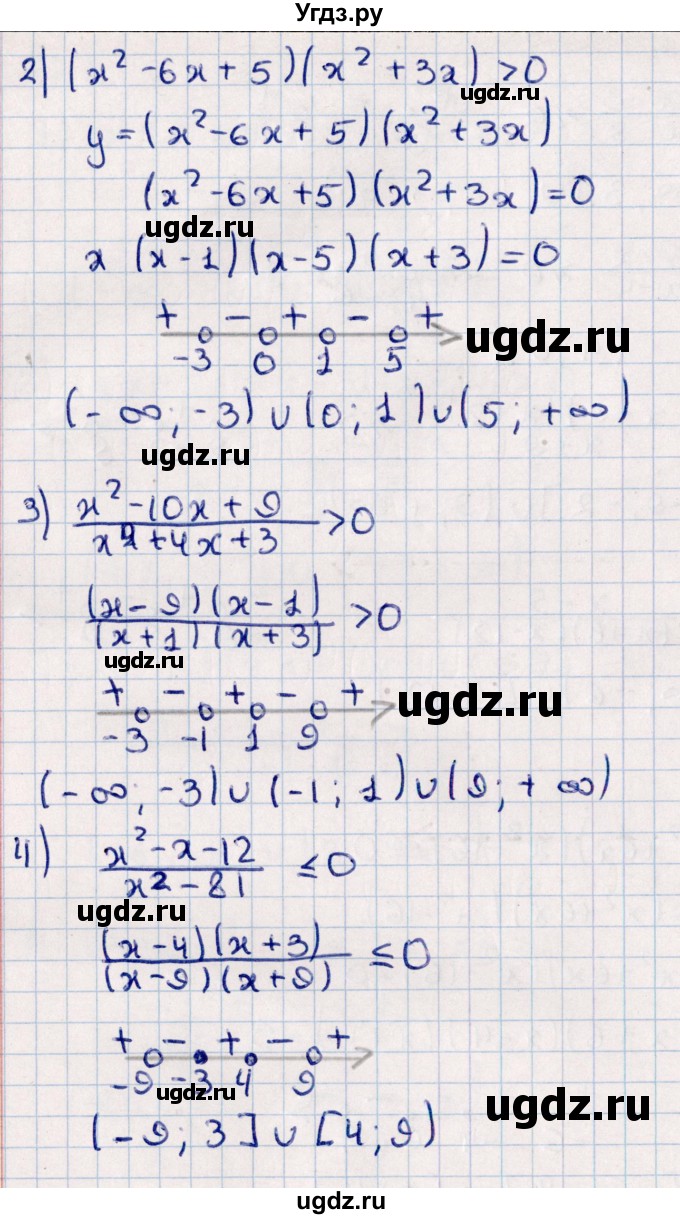 Угдз.ру
2) (x² - 6x + 5)(x² + 3x) > 0
ugdz.ru
y = (x² - 6x + 5)(x² + 3x)
(x² - 6x + 5)(x² + 3x) = 0
ugdz.ru
x (x - 1)(x - 5)(x + 3) = 0
+ - + - +
-3 0 1 5
ugdz.ru
(-∞; -3) ∪ (0; 1) ∪ (5; +∞)
ugdz.ru
3) x² - 10x + 9 / x² + 4x + 3 > 0
(x - 9)(x - 1) / (x + 1)(x + 3) > 0
ugdz.ru
+ - + - +
-3 -1 1 9
ugdz.ru
(-∞; -3) ∪ (-1; 1) ∪ (9; +∞)
4) x² - x - 12 / x² - 81 ≤ 0
ugdz.ru
(x - 4)(x + 3) / (x - 9)(x + 9) ≤ 0
+ - + - +
-9 -3 4 9
ugdz.ru
ugdz.ru
(-9; 3] ∪ [4; 9)
ugdz.ru